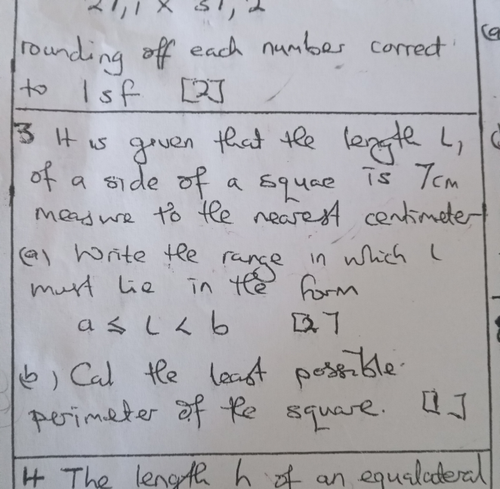 rounding off each number correct
to 1sf [2]
3 It is given that the length L,
of a side of a squae is 7cm
measure to the nearest centimeter
(a) Write the range in which L
must lie in the form
a ≤ L < b [2]
(b) Cal the least possible
perimeter of the square. [1]
4 The length h of an equalateral